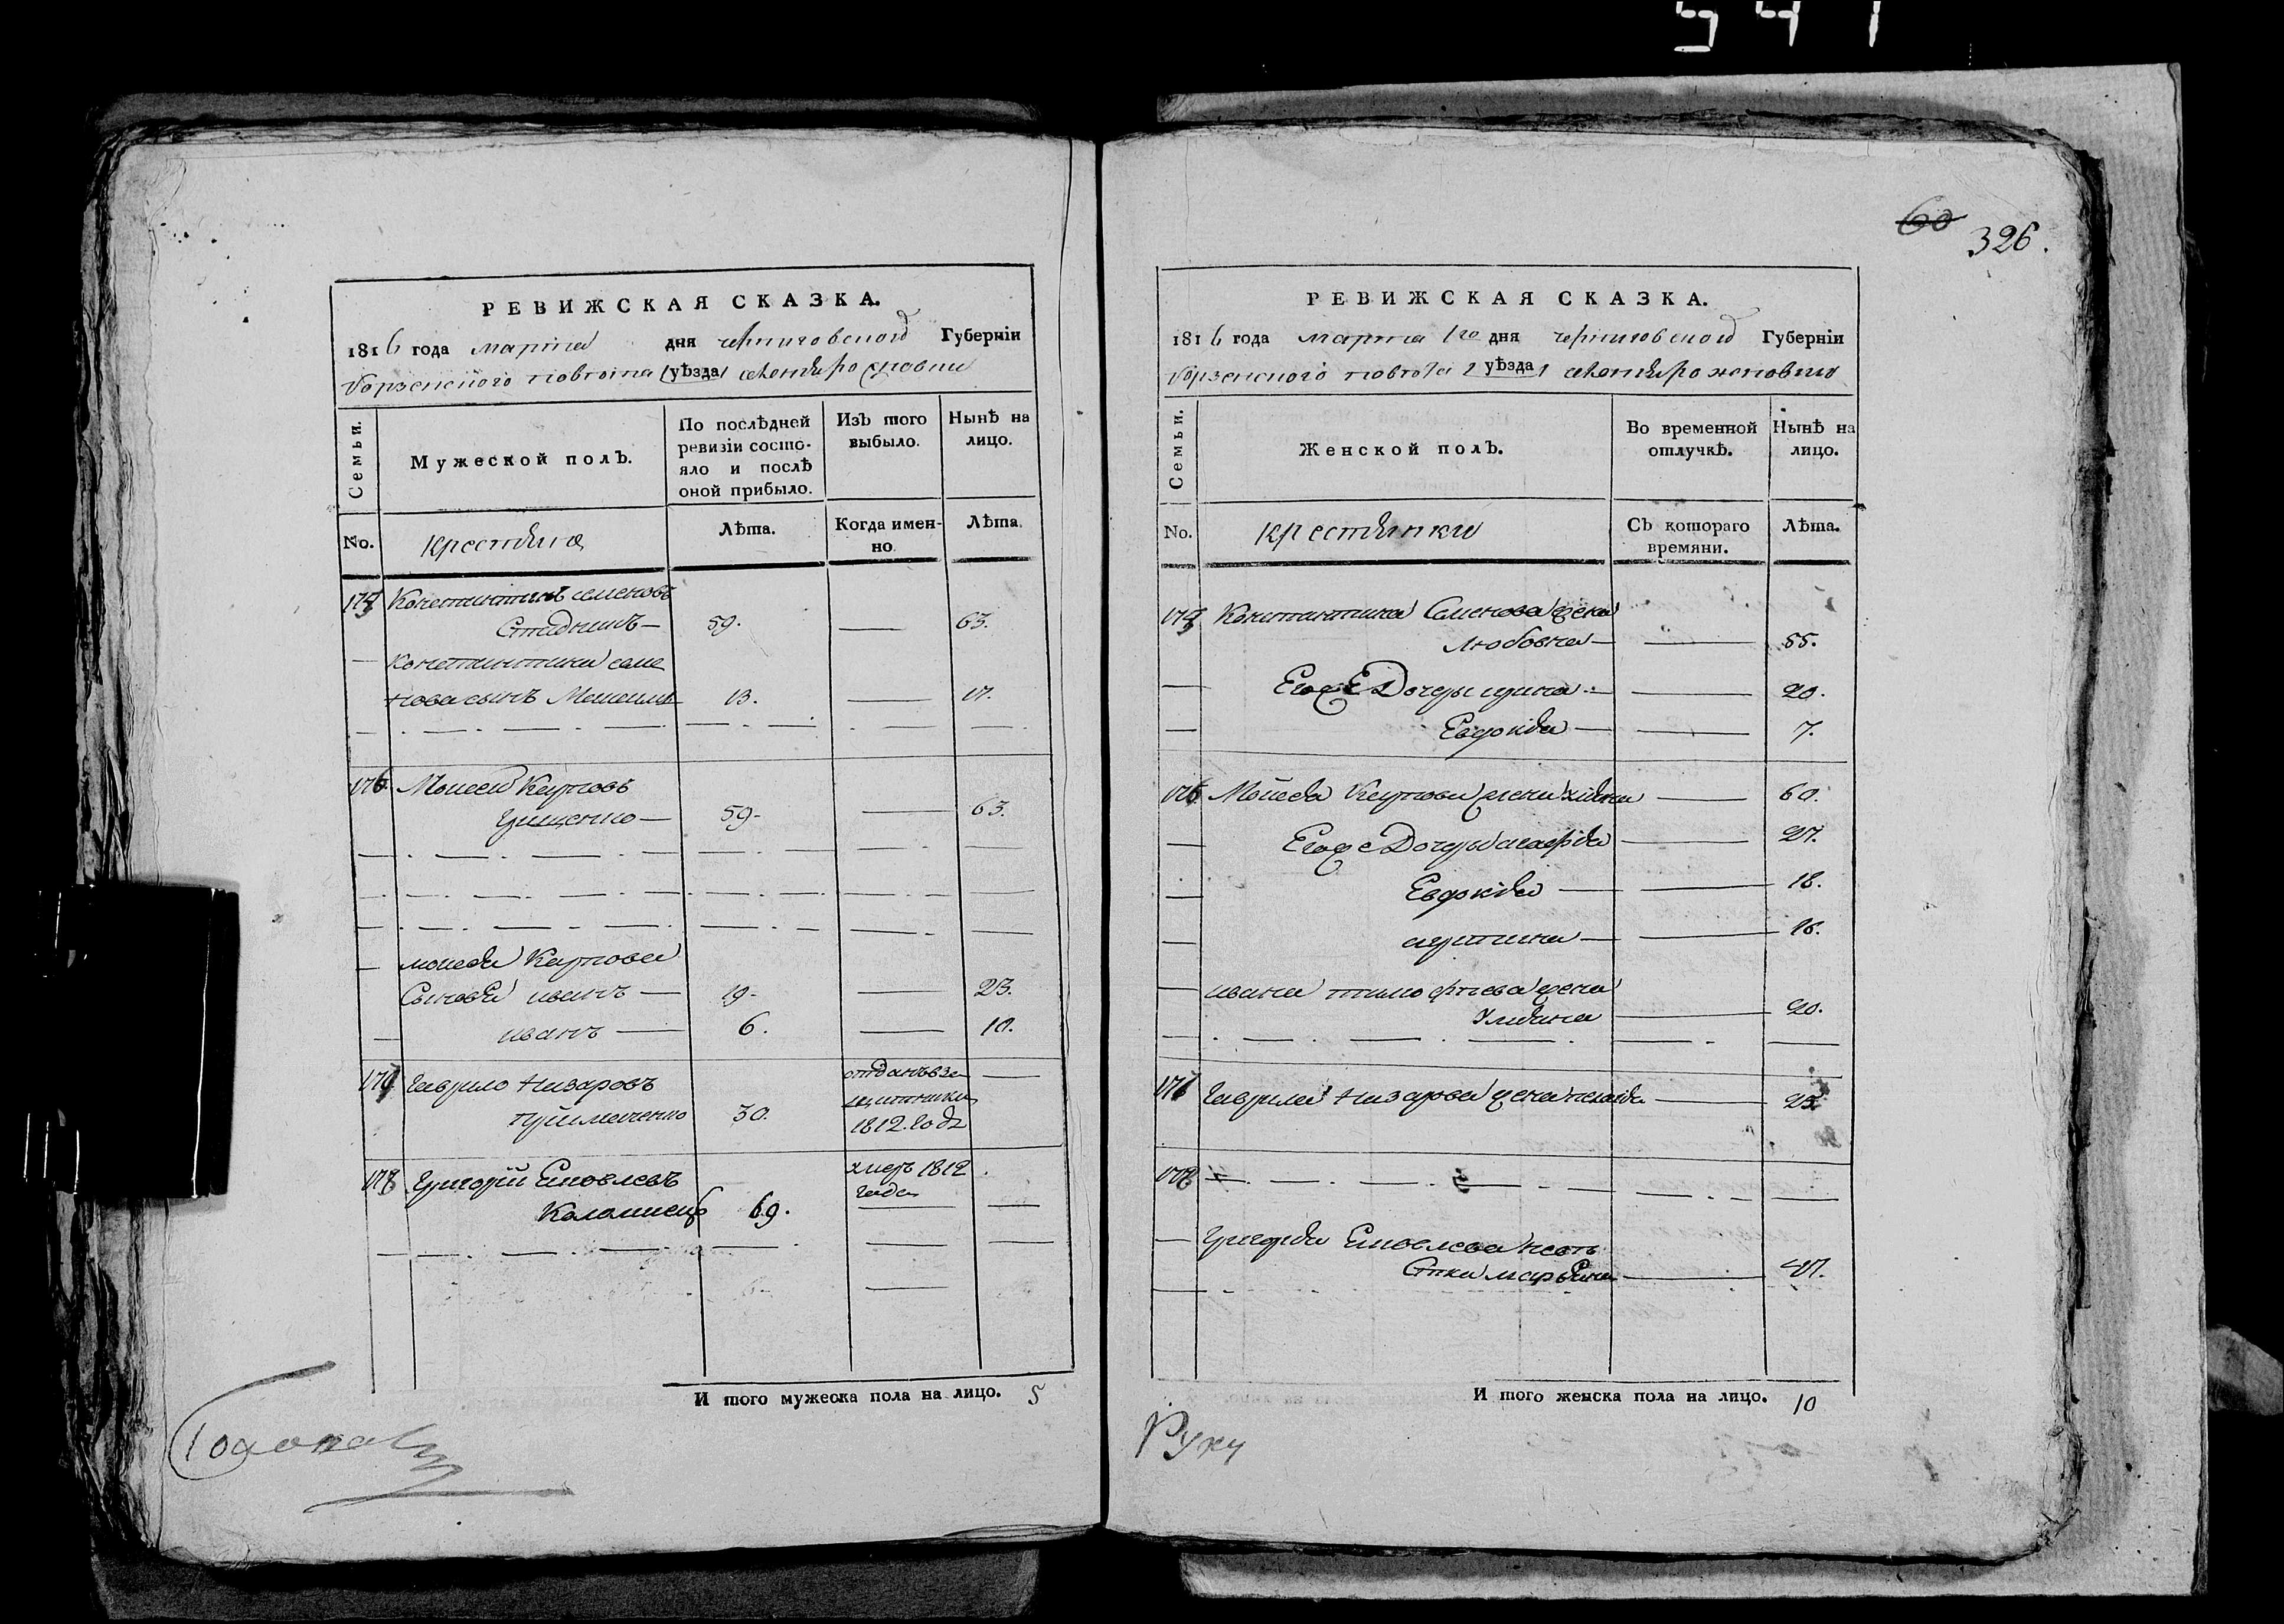 541
РЕВИЖСКАЯ СКАЗКА.
1816 года марта дня черниговской Губерніи
борзенского повѣта (уѣзда)
Семьи.
Мужеской полъ.
По послѣдней ревизіи состояло и послѣ оной прибыло.
Изъ того выбыло.
Нынѣ на лицо.
No.
крестьяне
Лѣта.
Когда именно.
Лѣта.
175 Константинъ семеновъ
59. — 63.
— константина семе
нова сынъ 13. — 17.
176 Моисей Карповъ
59 — 63.
— моисея Карпова
Сыновья иванъ — 19 — 23.
— иванъ — 6. — 10.
177 гаврило назаровъ
30. отданъ в
1812 года —
178 григорій
Коломиецъ 69. умеръ 1812 года —
И того мужеска пола на лицо. 5
60 326.
РЕВИЖСКАЯ СКАЗКА.
1816 года марта 1го дня черниговской Губерніи
борзенского повѣта (уѣзда)
Семьи.
Женской полъ.
Во временной отлучкѣ.
Нынѣ на лицо.
No.
крестьянки
Съ котораго времяни.
Лѣта.
175 Константина Семенова жена
Любовна — — 55.
— Его Дочеры ирина — — 20.
— Евдокія — — 7.
176 Моисея Карпова жена — 60.
— Его Дочеры агафія — 27.
— Евдокія — — 18.
— — — 16.
— ивана тимофеева жена
Ульяна — 20.
177 гаврила назарова жена пелагея — 25.
178
— григорія невѣстка марьяна — 47.
И того женска пола на лицо. 10
Руку